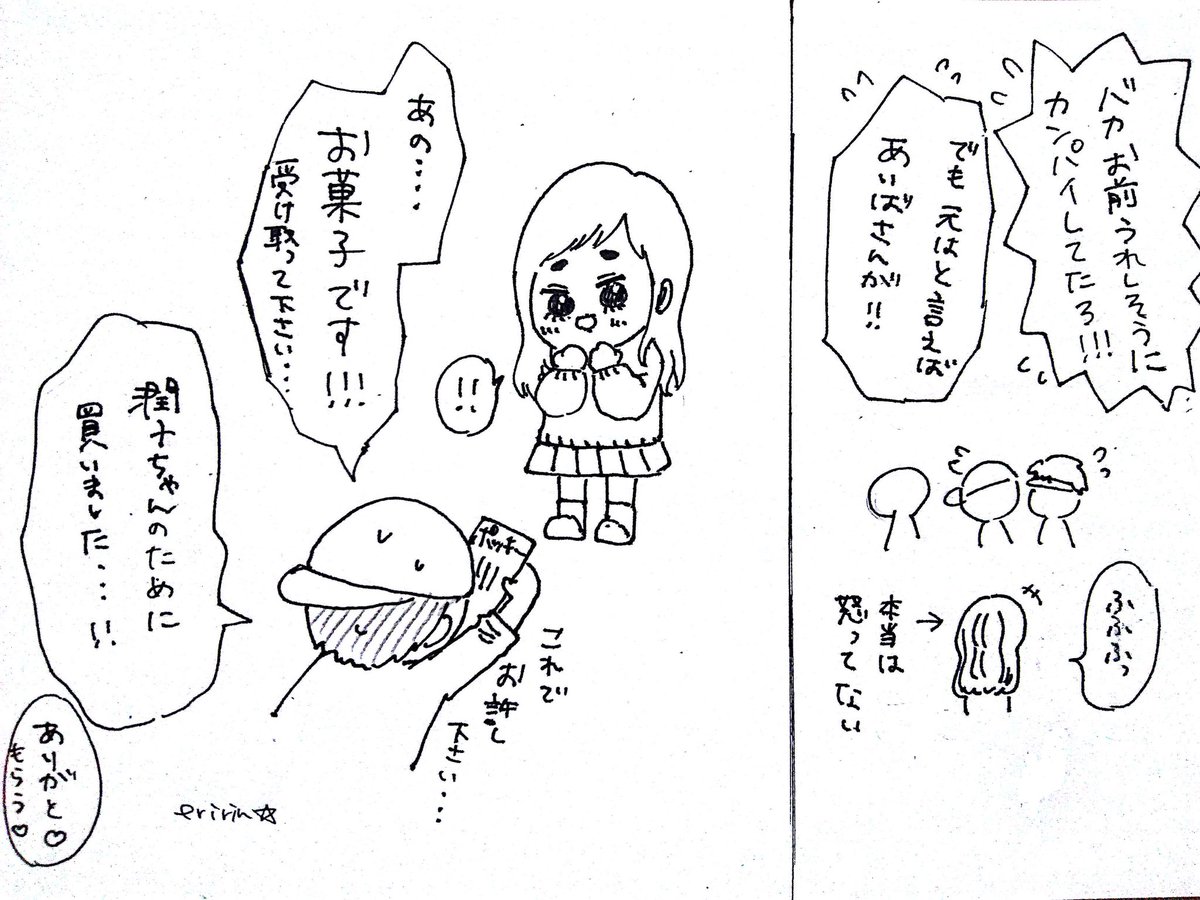 バカお前うれしそうに
カンパイしてたろ!!!
でも元はと言えば
あいばさんが!!
ふふふっ
本当は
怒ってない
!!
あの....
お菓子です!!!
受け取って下さい...
ポッキー
これで
お許し
下さい...
潤子ちゃんのために
買いました...!!
ありがと♡
もらう♡
eririn☆